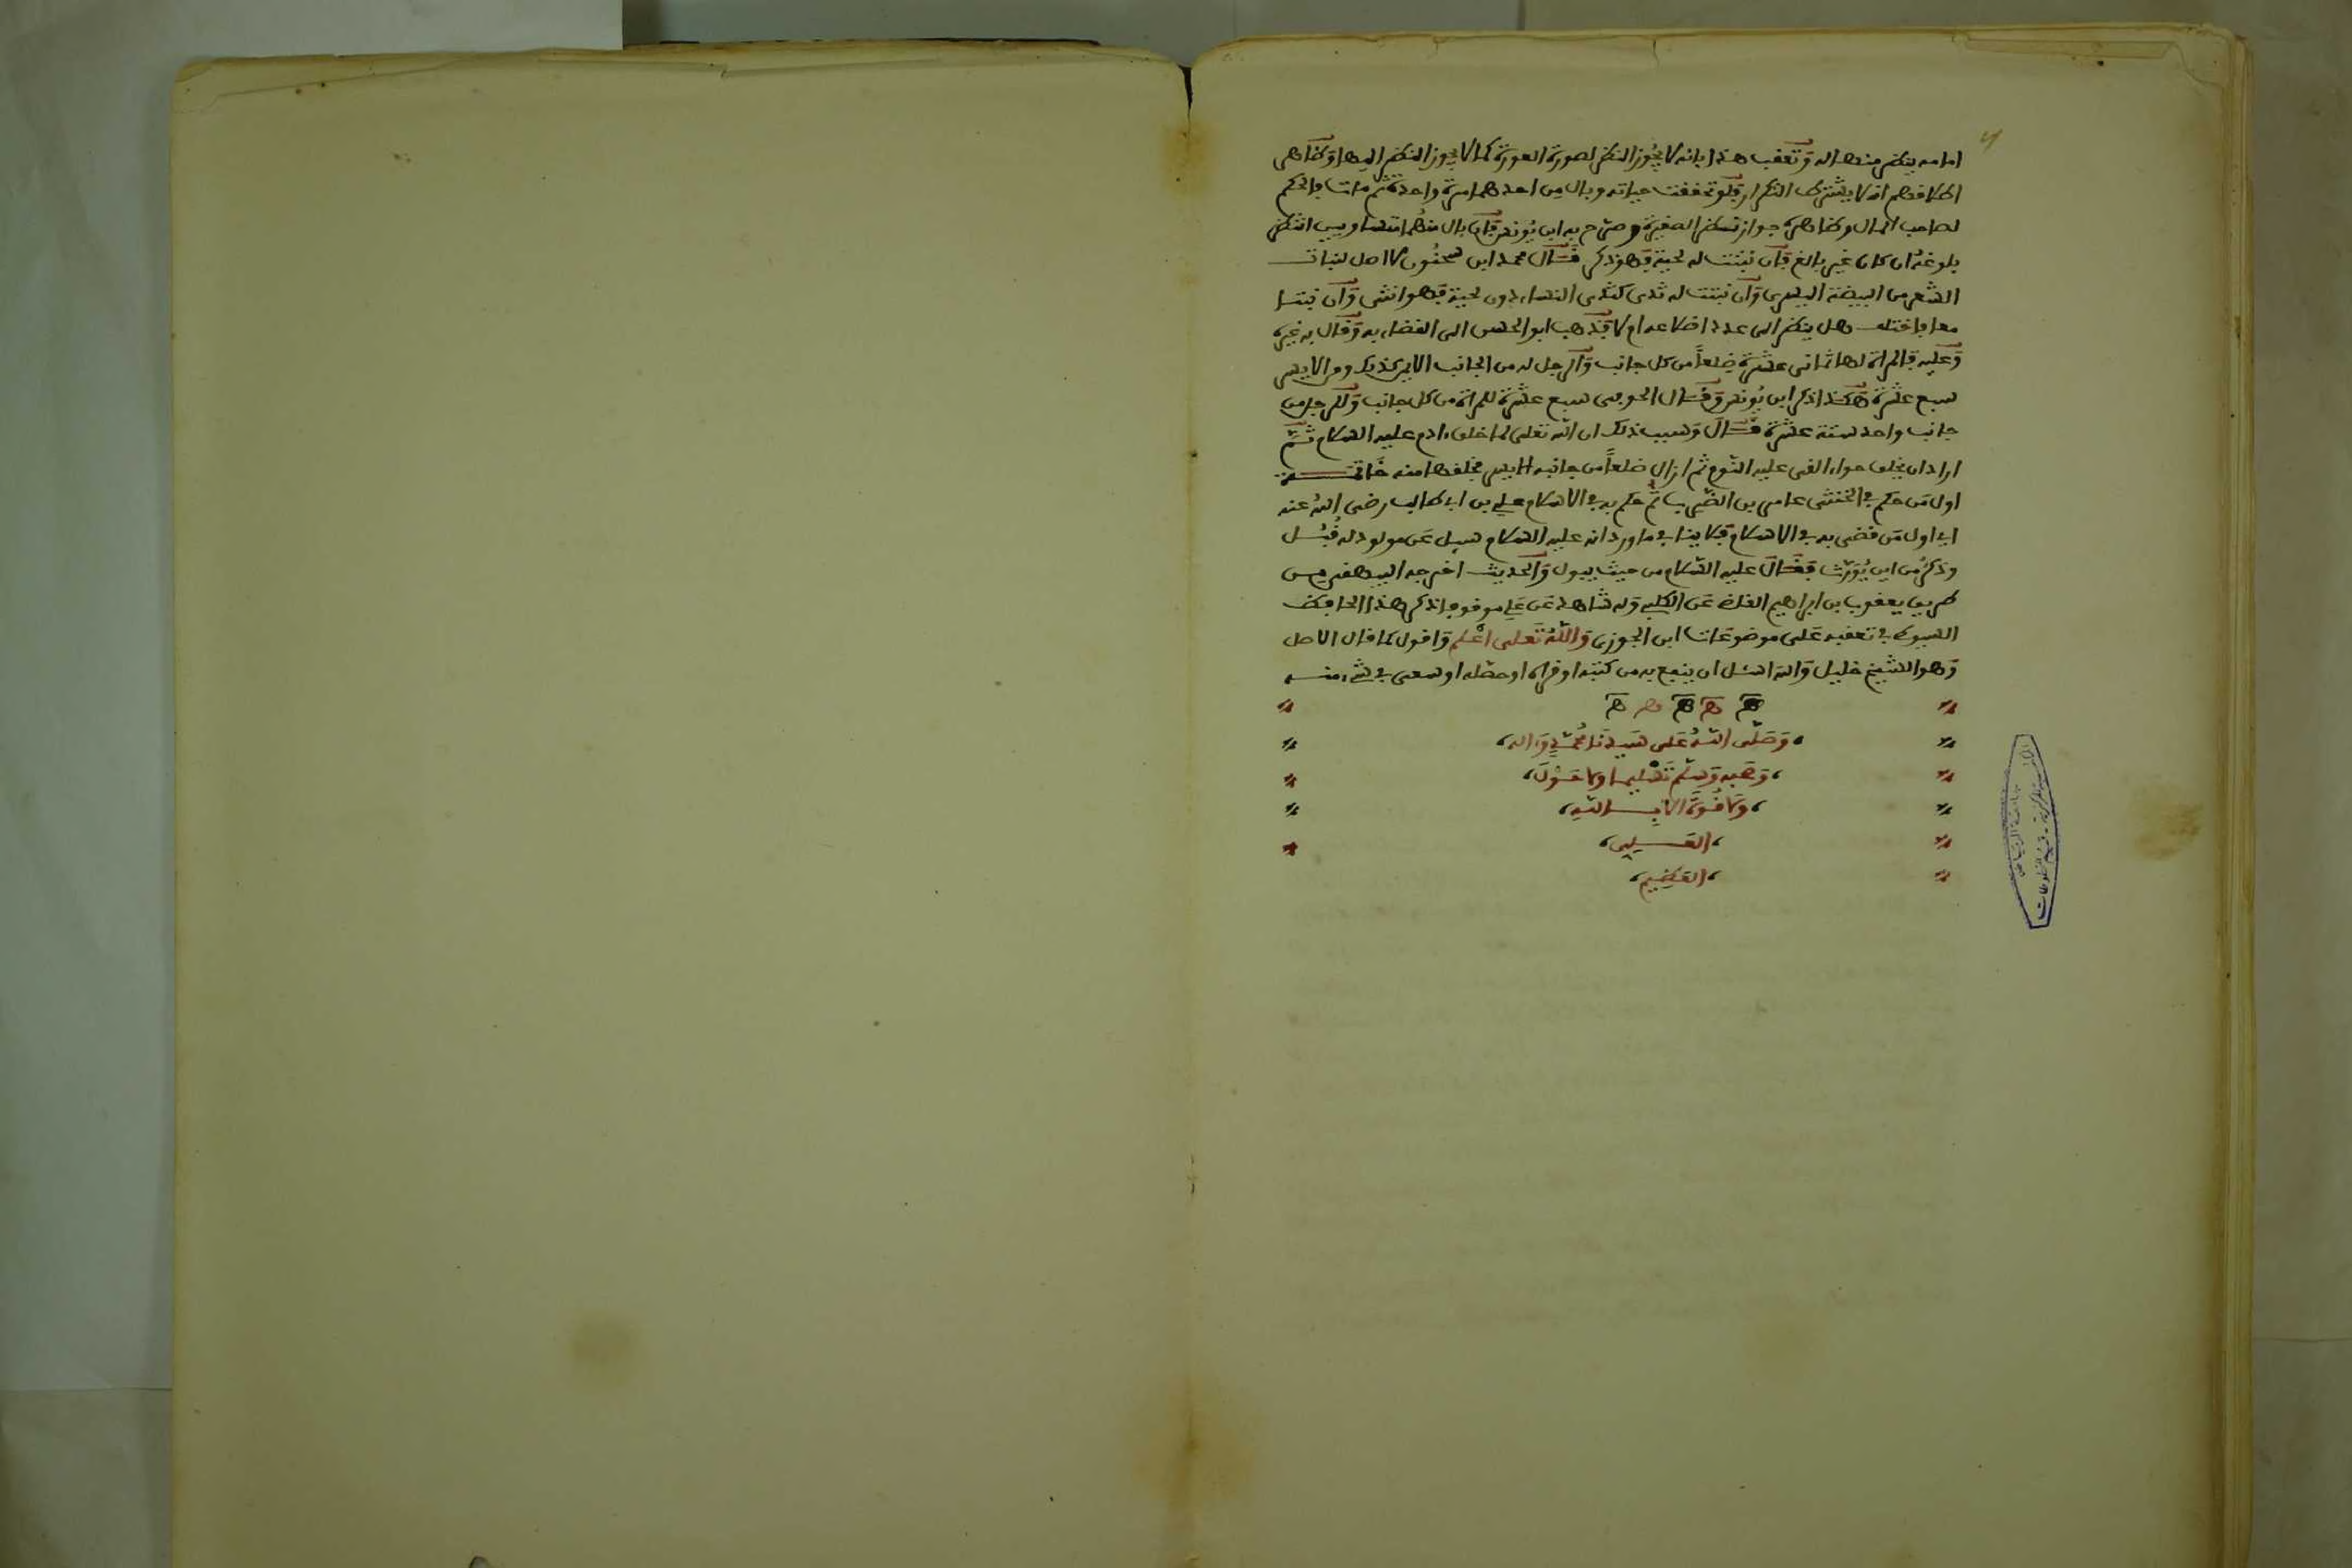 امامه ينظر منها اليه وتعقب هذا بانه لا يجوز النظر لصورة العورة كما لا يجوز النظر اليها وظاهر
اطلاقهم انه لا يشترط التكرار فلو تحققت حياته وبال من احدهما مرة واحدة ثم مات فالحكم
لصاحب المال وظاهره جواز نظر الصغيرة وصرح به ابن يونس فان بال منهما انتظر
بلوغه ان كان غير بالغ فان نبتت له لحية فهو ذكر قال محمد ابن سحنون لان اصل لنبات
الشعر من البيضة اليسرى وان نبتت له ثدي كثدي النساء دون لحية فهو انثى وان نبتا
معا فاختلف هل ينظر الى عدد اضلاعه ام لا فذهب ابو الحسن الى القضاء به وقال به غيره
وعليه فالمراة لها ثماني عشرة ضلعا من كل جانب والرجل له من الجانب الايمن كذلك ومن الايسر
سبع عشرة هكذا ذكر ابن يونس وقال الحوفي سبع عشرة للمراة من كل جانب وللرجل من
جانب واحد ستة عشرة قال وسبب ذلك ان الله تعلى لما خلق ءادم عليه السلام ثم
اراد ان يخلق حواء القى عليه النوم ثم ازال ضلعا من جانبه الايسر فخلقها منه خاتمة
اول من حكم في الخنثى عامر بن الضرب ثم حكم به في الاسلام علي بن ابي طالب رضي الله عنه
اي اول من قضى به في الاسلام فلا ينافي ما ورد انه عليه السلام سيل عن مولود له قبل
وذكر من اين يورث فقال عليه السلام من حيث يبول والحديث اخرجه البيهقي من
طريق يعقوب بن ابراهيم القاضي عن الكلبي وله شاهد عن علي موقوفا ذكر هذا الحافظ
السيوطي في تعقبه على موضوعات ابن الجوزي والله تعلى اعلم واقول كما قال الاصل
وهو الشيخ خليل والله اسئل ان ينفع به من كتبه او قراه او حصله او سعى في شيء منه
وصلى الله على سيدنا محمد واله
وصحبه وسلم تسليما ولا حول
ولا قوة الا بالله
العلي
العظيم